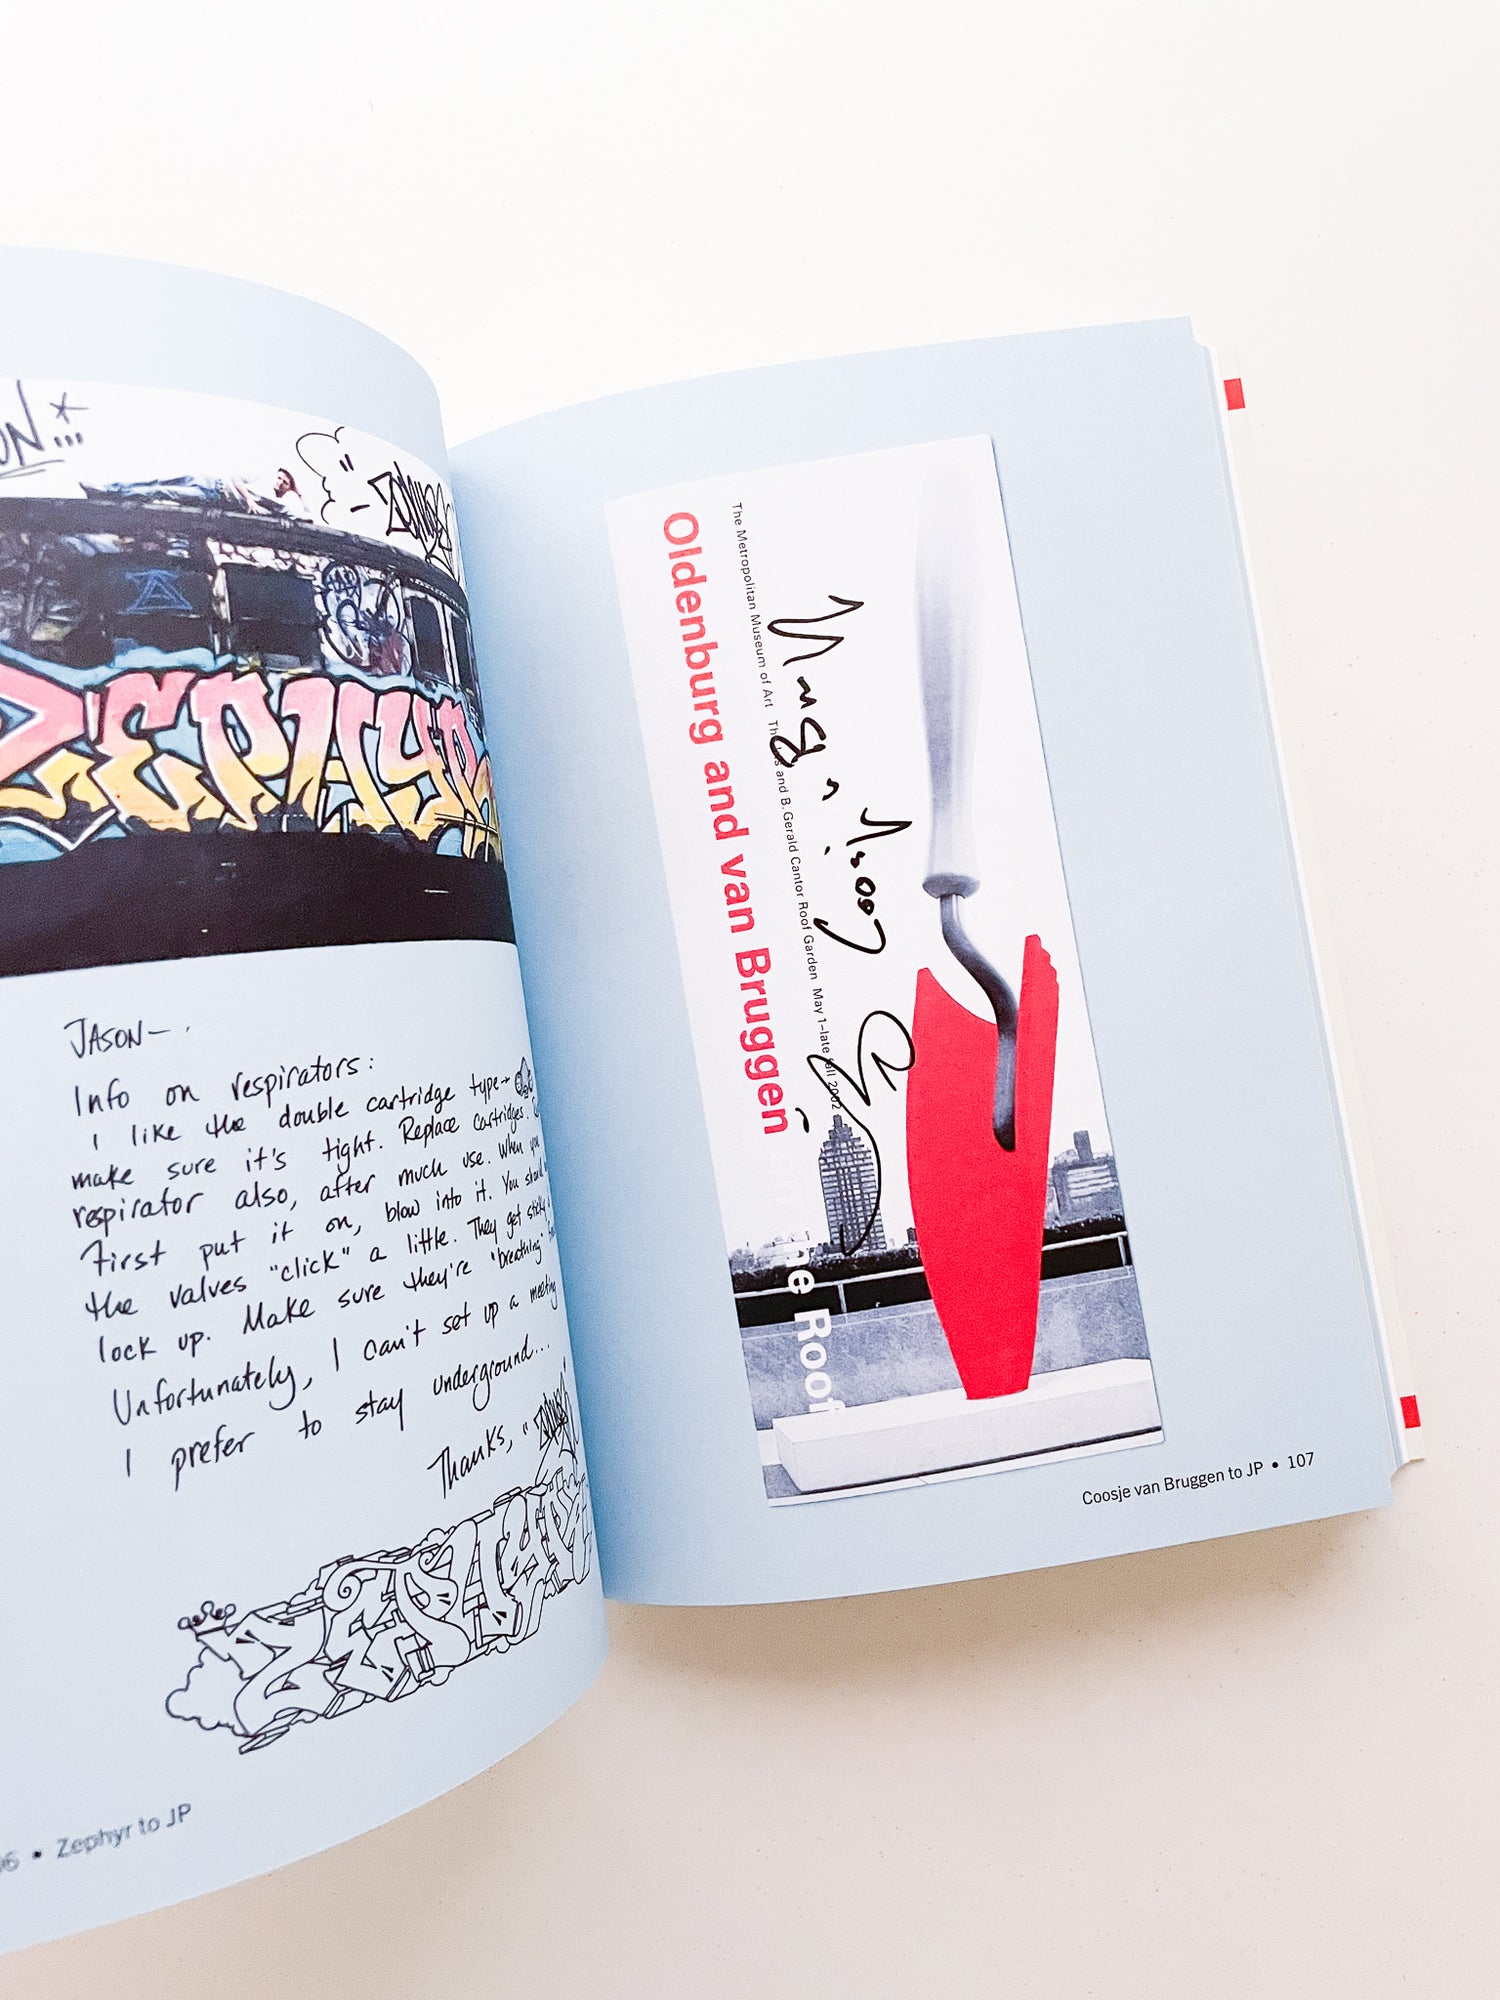 ON...
ZEPHYR
JASON—
Info on respirators:
I like the double cartridge type→
make sure it's tight. Replace cartridges.
respirator also, after much use. When you
first put it on, blow into it. You should
the valves "click" a little. They get sticky
lock up. Make sure they're "breathing"
Unfortunately, I can't set up a meeting
I prefer to stay underground...
Thanks, "
ZEPHYR
06 • Zephyr to JP
Oldenburg and van Bruggen
on the Roof
The Metropolitan Museum of Art The Iris and B. Gerald Cantor Roof Garden May 1–late fall 2002
Coosje van Bruggen to JP • 107